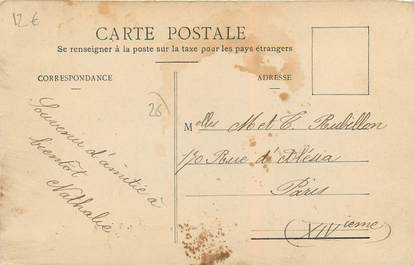 12 €
CARTE POSTALE
Se renseigner à la poste sur la taxe pour les pays étrangers
CORRESPONDANCE
ADRESSE
26
Souvenir d'amitié à
bientôt
Nathalie
Melles M et C. Rubillon
170 Rue d'Alésia
Paris
(XIVième)